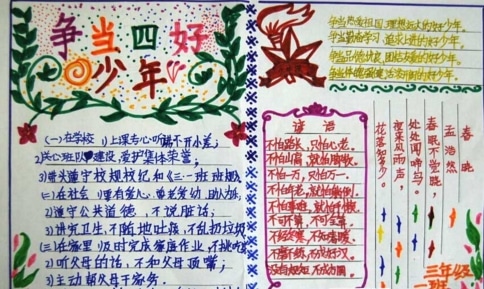 争当四好
少年
(一)在学校 1)上课专心听讲不开小差;
2)关心班队建设,爱护集体荣誉;
3)带头遵守校规校纪和《三一班班规》
(二)在社会 1)要有爱心,尊老爱幼,助人为乐;
2)遵守公共道德,不说脏话;
3)讲究卫生,不随地吐痰,不乱扔垃圾
(三)在家里 1)及时完成家庭作业,
2)听父母的话,不和父母顶嘴;
3)主动帮父母干家务.
争当热爱祖国,理想远大的好少年.
争当勤奋学习,追求上进的好少年.
争当品德优良,团结友爱的好少年.
争当体魄强健,活泼开朗的好少年.
谚语
不怕路长,只怕心老.
不怕山高,就怕脚软.
不怕一万,只怕万一.
不经冬寒,不知春暖.
春晓
孟浩然
春眠不觉晓,
处处闻啼鸟.
夜来风雨声,
花落知多少.
三年级
一班